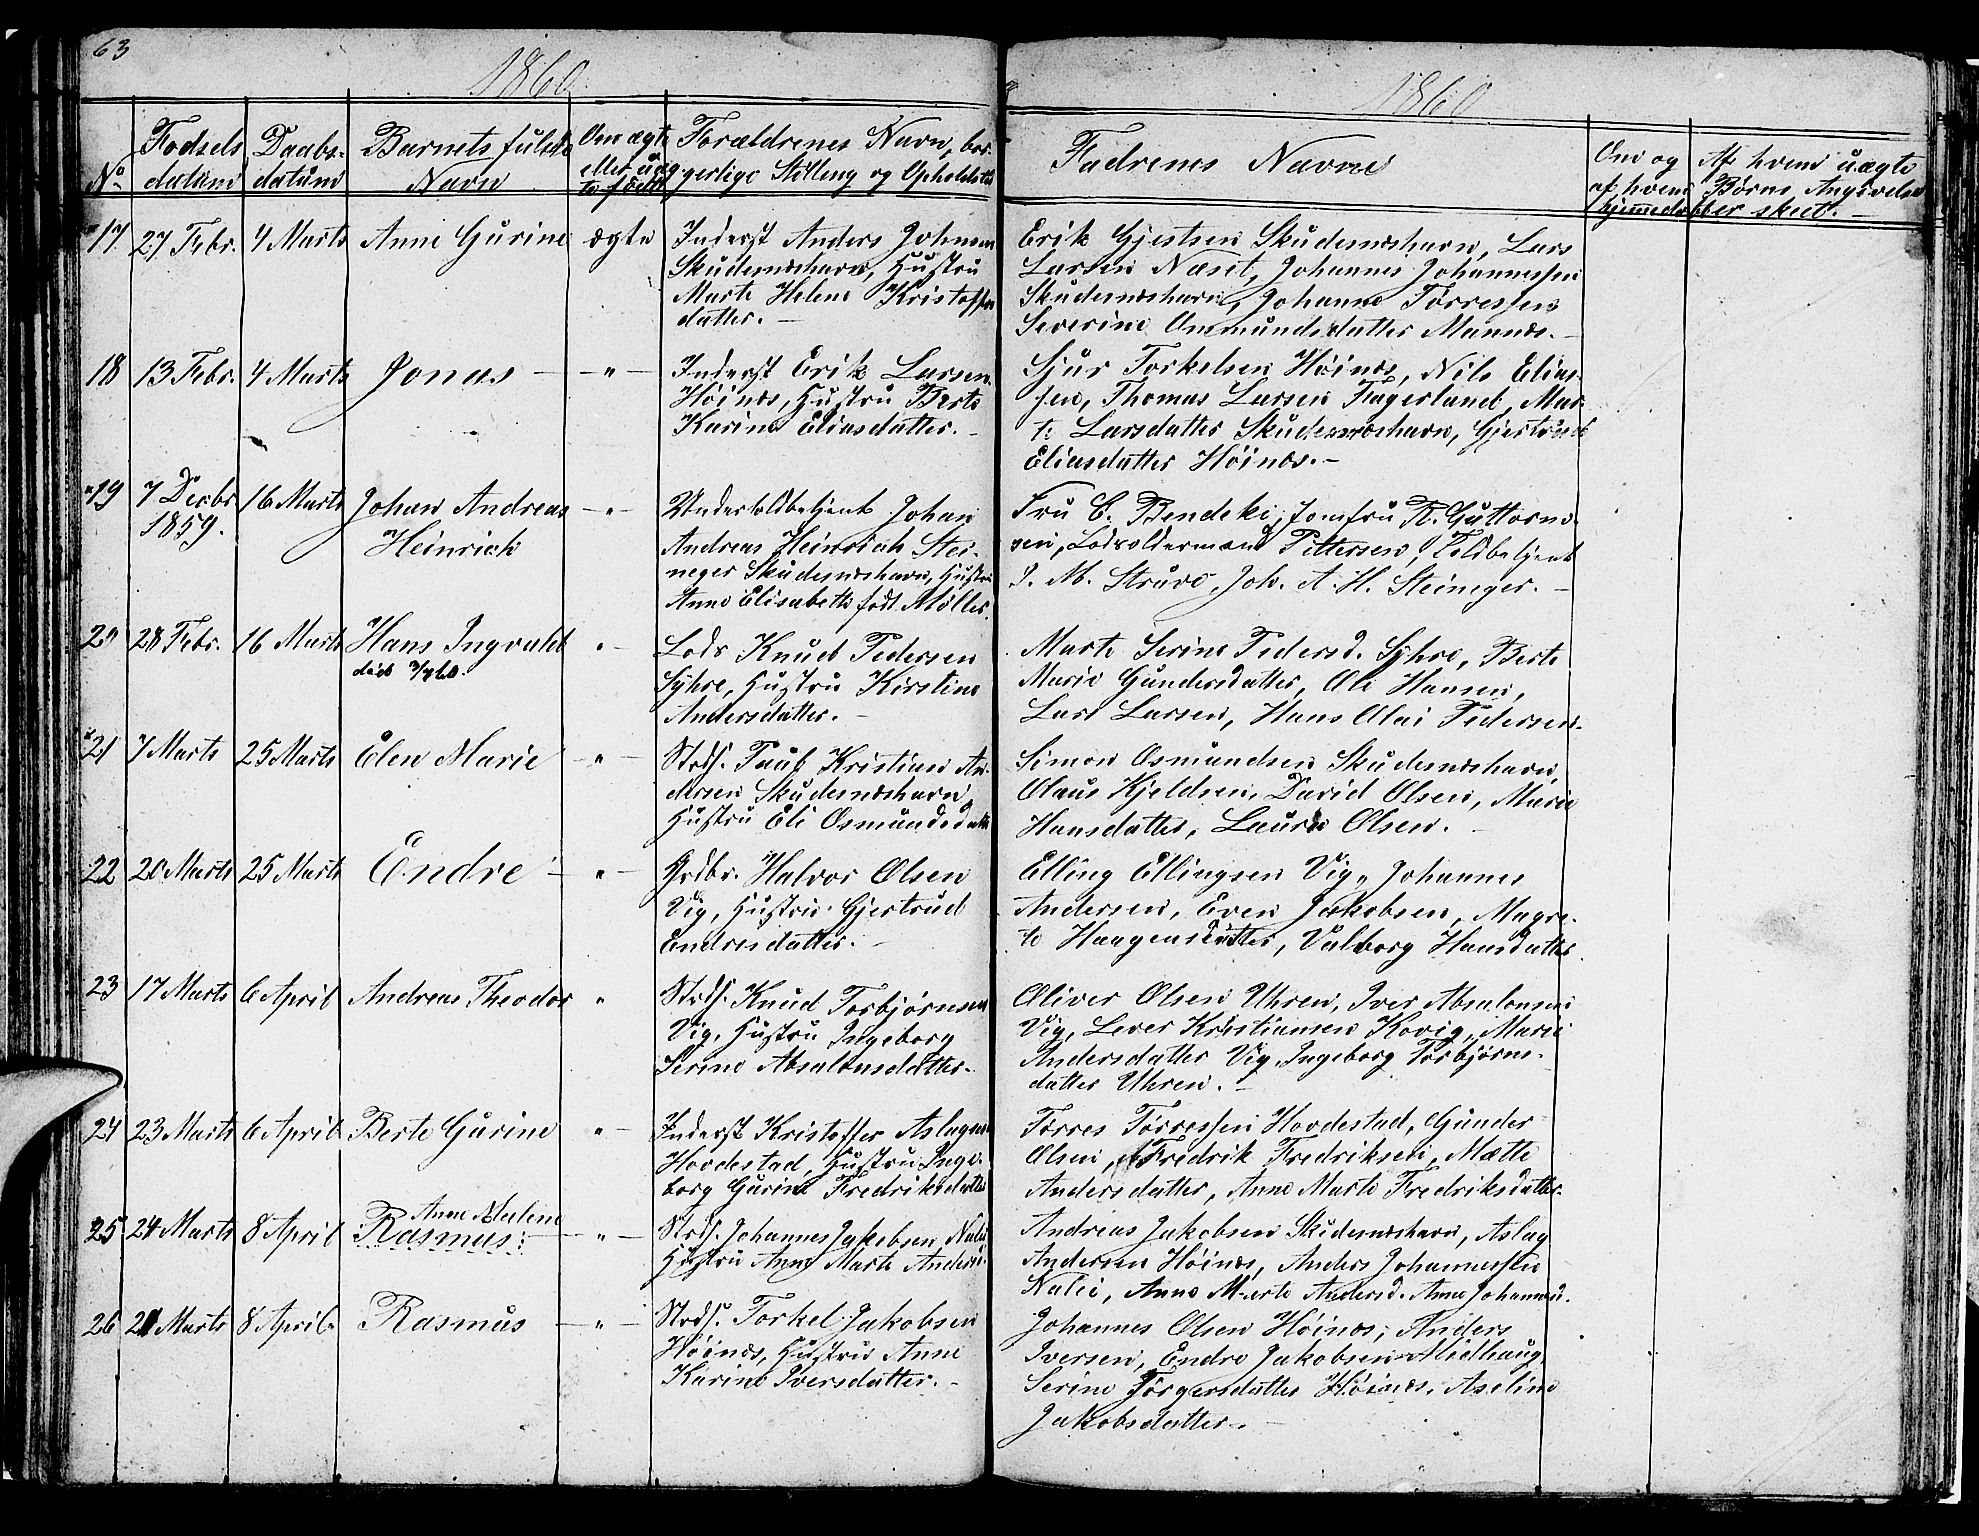 63
1860
1860
No Fodsels datum Daabs- datum Barnets fulde Navn Om ægte eller uæg- te født Forældrenes Navn, bor- gerlige Stilling og Opholdsted
Fadrenes Navne
Om og af hvem hjemmedøbt
Af hvem uægte Børns Angivelse er skeet.
17 27 Febr. 4 Marts Anne Gurine ægte Inderst Anders Johnsen
Skudesnæshavn, Hustru
Marte Helene Kristoffers
datter.
Erik Gjertsen Skudesnæshavn, Lars
Larsen Næset, Johannes Johannessen
Skudesnæshavn, Johanne Tørressen
Severine Ommundsdatter Mannes.
18 13 Febr. 4 Marts Jonas - " - Inderst Erik Larsen
Høinæs, Hustru Berte
Karine Eliasdatter.
Sjur Torkelsen Høinæs, Nils Elias-
sen, Thomas Larsen Fagerland, Mar-
te Larsdatter Skudesnæshavn, Gjertrud
Eliasdatter Høinæs.
19 7 Decbr 1859. 16 Marts Johan Andreas Heinrich - " - Undertoldbetjent Johan
Andreas Heinrich Stei-
neger Skudesnæshavn, Hustru
Anne Elisabeth født Møller.
Fru C. Bendeke, Jomfru R. Guttorm-
sen, Lodsolderman Pettersen, Toldbetjent
J. M. Struve, Joh. A. H. Steineger.
20 28 Febr. 16 Marts Hans Ingvald " Lods Knud Pedersen
død 3/4 60.
Syhre, Hustru Kirstine
Andersdatter.
Marte Serine Pedersd. Syhre, Berte
Marie Gundersdatter, Ole Hansen,
Lars Larsen, Hans Olai Pedersen.
21 7 Marts 25 Marts Elen Marie - " - Strds. Paul Kristian An-
dersen Skudesnæshavn,
Hustru Eli Osmundsdatter
Simon Osmundsen Skudesnæshavn,
Olaus Kjeldsen, David Olsen, Marie
Hansdatter, Laura Olsen.
22 20 Marts 25 Marts Endre - " - Grdbr. Halvor Olsen
Vig, Hustru Gjertrud
Endresdatter.
Elling Ellingsen Vig, Johannes
Andersen, Even Jakobsen, Magre-
te Haagensdatter, Valborg Hansdatter.
23 17 Marts 6 April Andreas Theodor " Strds. Knud Torbjørnsen
Vig, Hustru Ingeborg
Serine Absalonsdatter.
Oliver Olsen Uhren, Iver Absalonsen
Vig, Lever Kristiansen Kovig, Marie
Andersdatter Vig, Ingeborg Torbjørns-
datter Uhren.
24 23 Marts 6 April Berte Gurine " Inderst Kristoffer Aslagsen
Hovdestad, Hustru Inge-
borg Gurine Fredriksdatter
Tørres Tørressen Hovdestad, Gunder
Olsen, Fredrik Fredriksen, Mætte
Andersdatter, Anne Marte Fredriksdatter.
25 24 Marts 8 April Anne Malene Rasmus - " - Strds. Johannes Jakobsen Nalei
Hustru Anne Marte Andersd.
Andreas Jakobsen Skudesnæshavn, Aslag
Andersen Høinæs, Anders Johannessen
Nalei, Anne Marte Andersd. Anne Johannesd.
26 21 Marts 8 April Rasmus - " - Strds. Torkel Jakobsen
Høinæs, Hustru Anne
Karine Iversdatter.
Johannes Olsen Høinæs, Anders
Iversen, Endre Jakobsen Midhaug,
Serine Torgersdatter Høinæs, Aseline
Jakobsdatter.